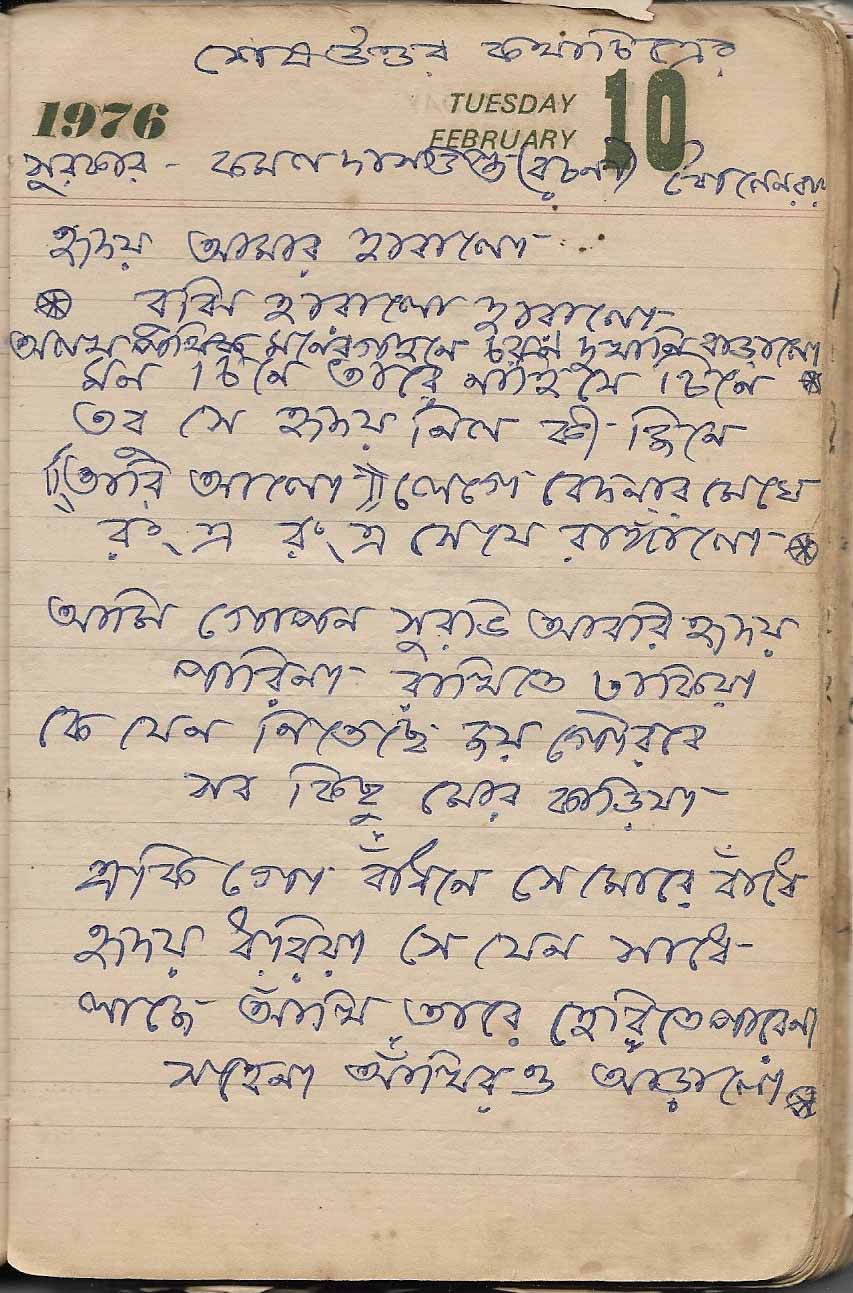 শেষ উত্তর কথাচিত্রের
1976 TUESDAY FEBRUARY 10
সুরকার - কমল দাশগুপ্ত (রচনা)
হৃদয় আমার হারালো
হারালো হারালো
মনের গহনে চরণ দুখানি বাড়ালো
মন চিনে তারে নাহি সে চিনে
তবু সে হৃদয় নিল কী জিনে
(তারি আলো) লেগে বেদনার মেঘে
রং এ রং এ সে যে রাঙালো
আমি গোপন সুরভি আবরি হৃদয়
পারিনা রাখিতে ঢাকিয়া
কে যেন নিতেছে জয় গৌরবে
সব কিছু মোর কাড়িয়া
একি গো বাঁধনে সে মোরে বাঁধে
হৃদয় ধরিয়া সে যেন সাধে
লাজে আঁখি তারে হেরিতে পারেনা
সহেনা আঁখিরও আড়ালো